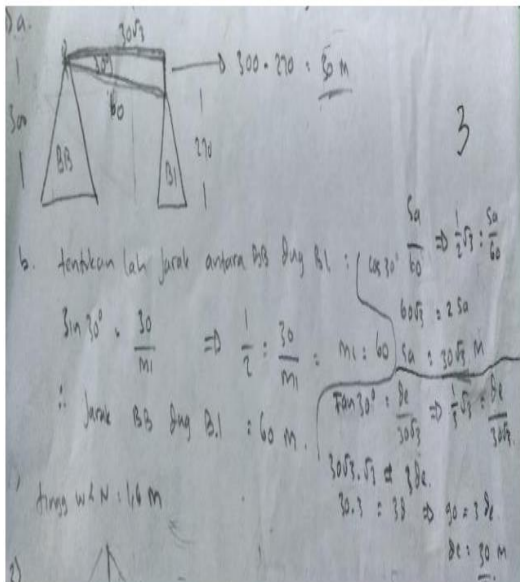 a.
30√3
30°
60
300
BB
BI
270
300 - 270 = 30 M
3
b. tentukan lah jarak antara BB dng BI :
Sin 30° = 30/mi => 1/2 = 30/mi = mi = 60
∴ Jarak BB dng B.I = 60 M.
Cos 30° = sa/60 => 1/2 √3 = sa/60
60√3 = 2 sa
sa = 30√3 M
Tan 30° = de/30√3 => 1/3 √3 = de/30√3
30√3.√3 = 3 de
30.3 = 3d => 90 = 3 de
de = 30 M
tingg N = 1,6 M